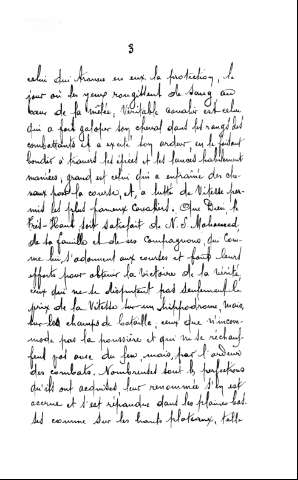 3
celui qui trouve en eux la protection, le
jour où les yeux rougissent de sang au
cœur de la mêlée, Véritable cavalier est celui
qui a fait galoper son cheval dans les rangs des
combattants et a excité son ardeur, en le faisant
bondir à travers les épées et les lances habilement
maniées, grand est celui qui a entrainé des che-
vaux pour la course, et, a lutté de Vitesse par-
mis les plus fameux Cavaliers. Que Dieu le
Très-Haut soit satisfait de N. S. Mohammed,
de sa famille et de ses Compagnons, qui Com-
me lui s'adonnent aux courses et font leurs
efforts pour obtenir la Victoire de la vérité,
ceux qui ne se disputent pas seulement le
prix de la Vitesse sur un hippodrome, mais
sur les champs de bataille, ceux que n'incom-
mode pas la poussière et qui ne se réchauf-
fent pas avec du feu, mais par l'ardeur
des combats. Nombreuses sont les perfections
qu'ils ont acquises, leur renommée s'en est
accrue et s'est répandue dans les plaines bas-
ses comme sur les hauts plateaux, telle